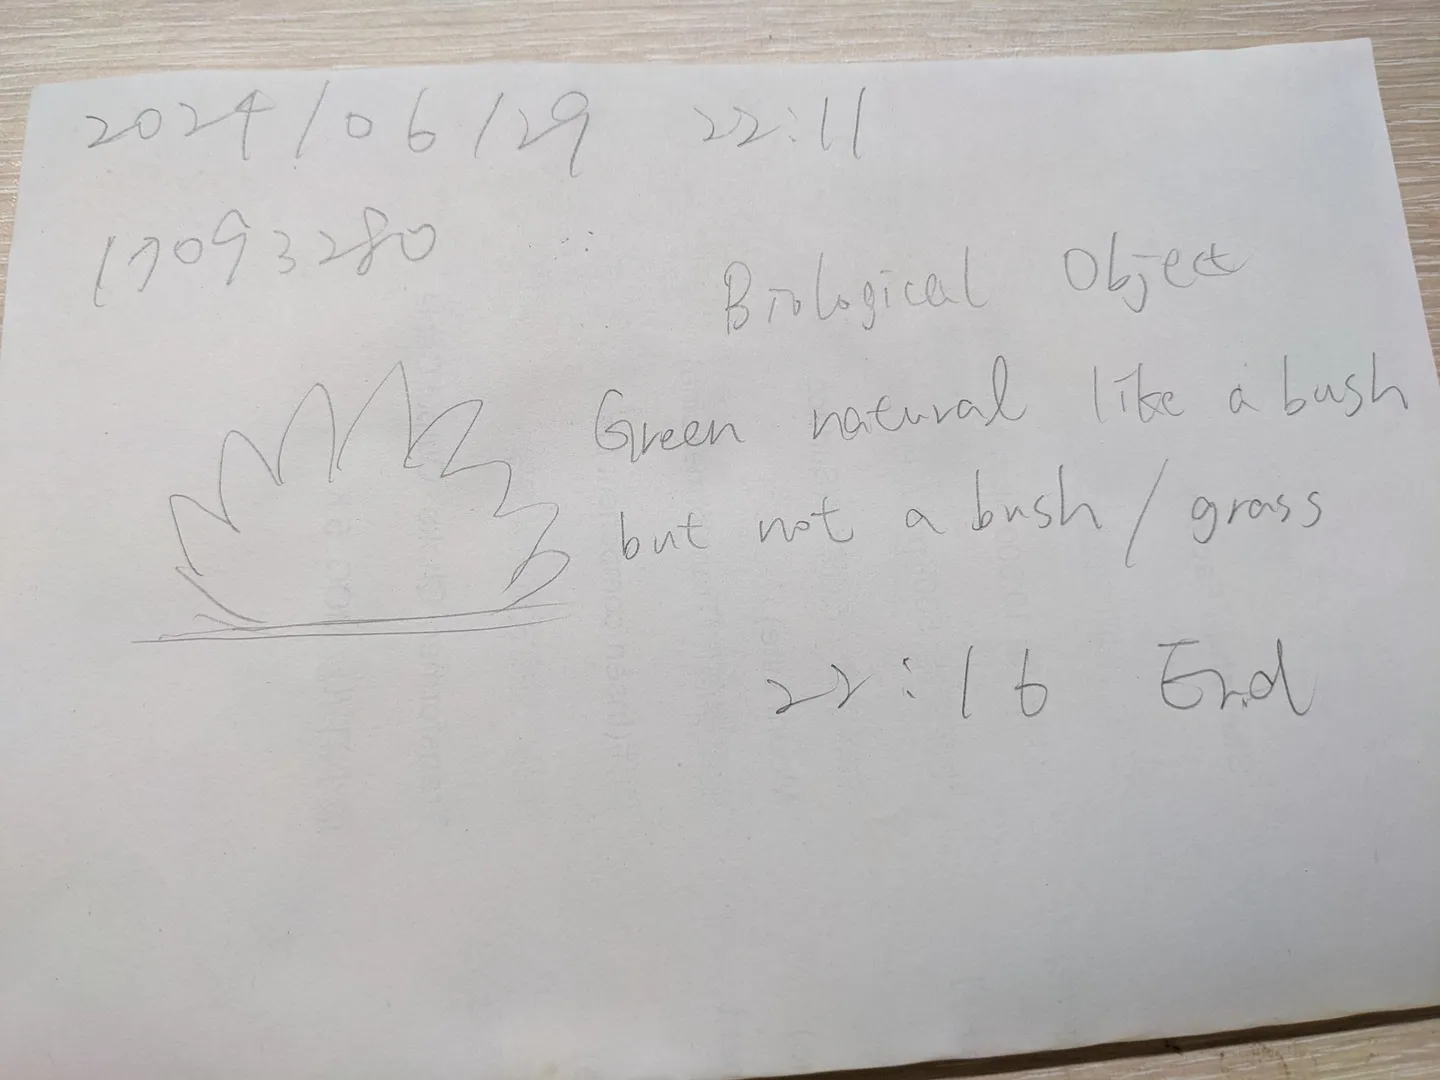 2024/06/29 22:11
17093280
Biological Object
Green natural like a bush
but not a bush / grass
22:16 End